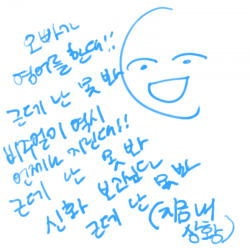 오빠가
영어를 한대!!
근데 난 못 봐
비주얼이 역시
언제나 지린대!!
근데 난 못 봐
신화 보라난다
근데 난 못 봐
(지금 내
상황)